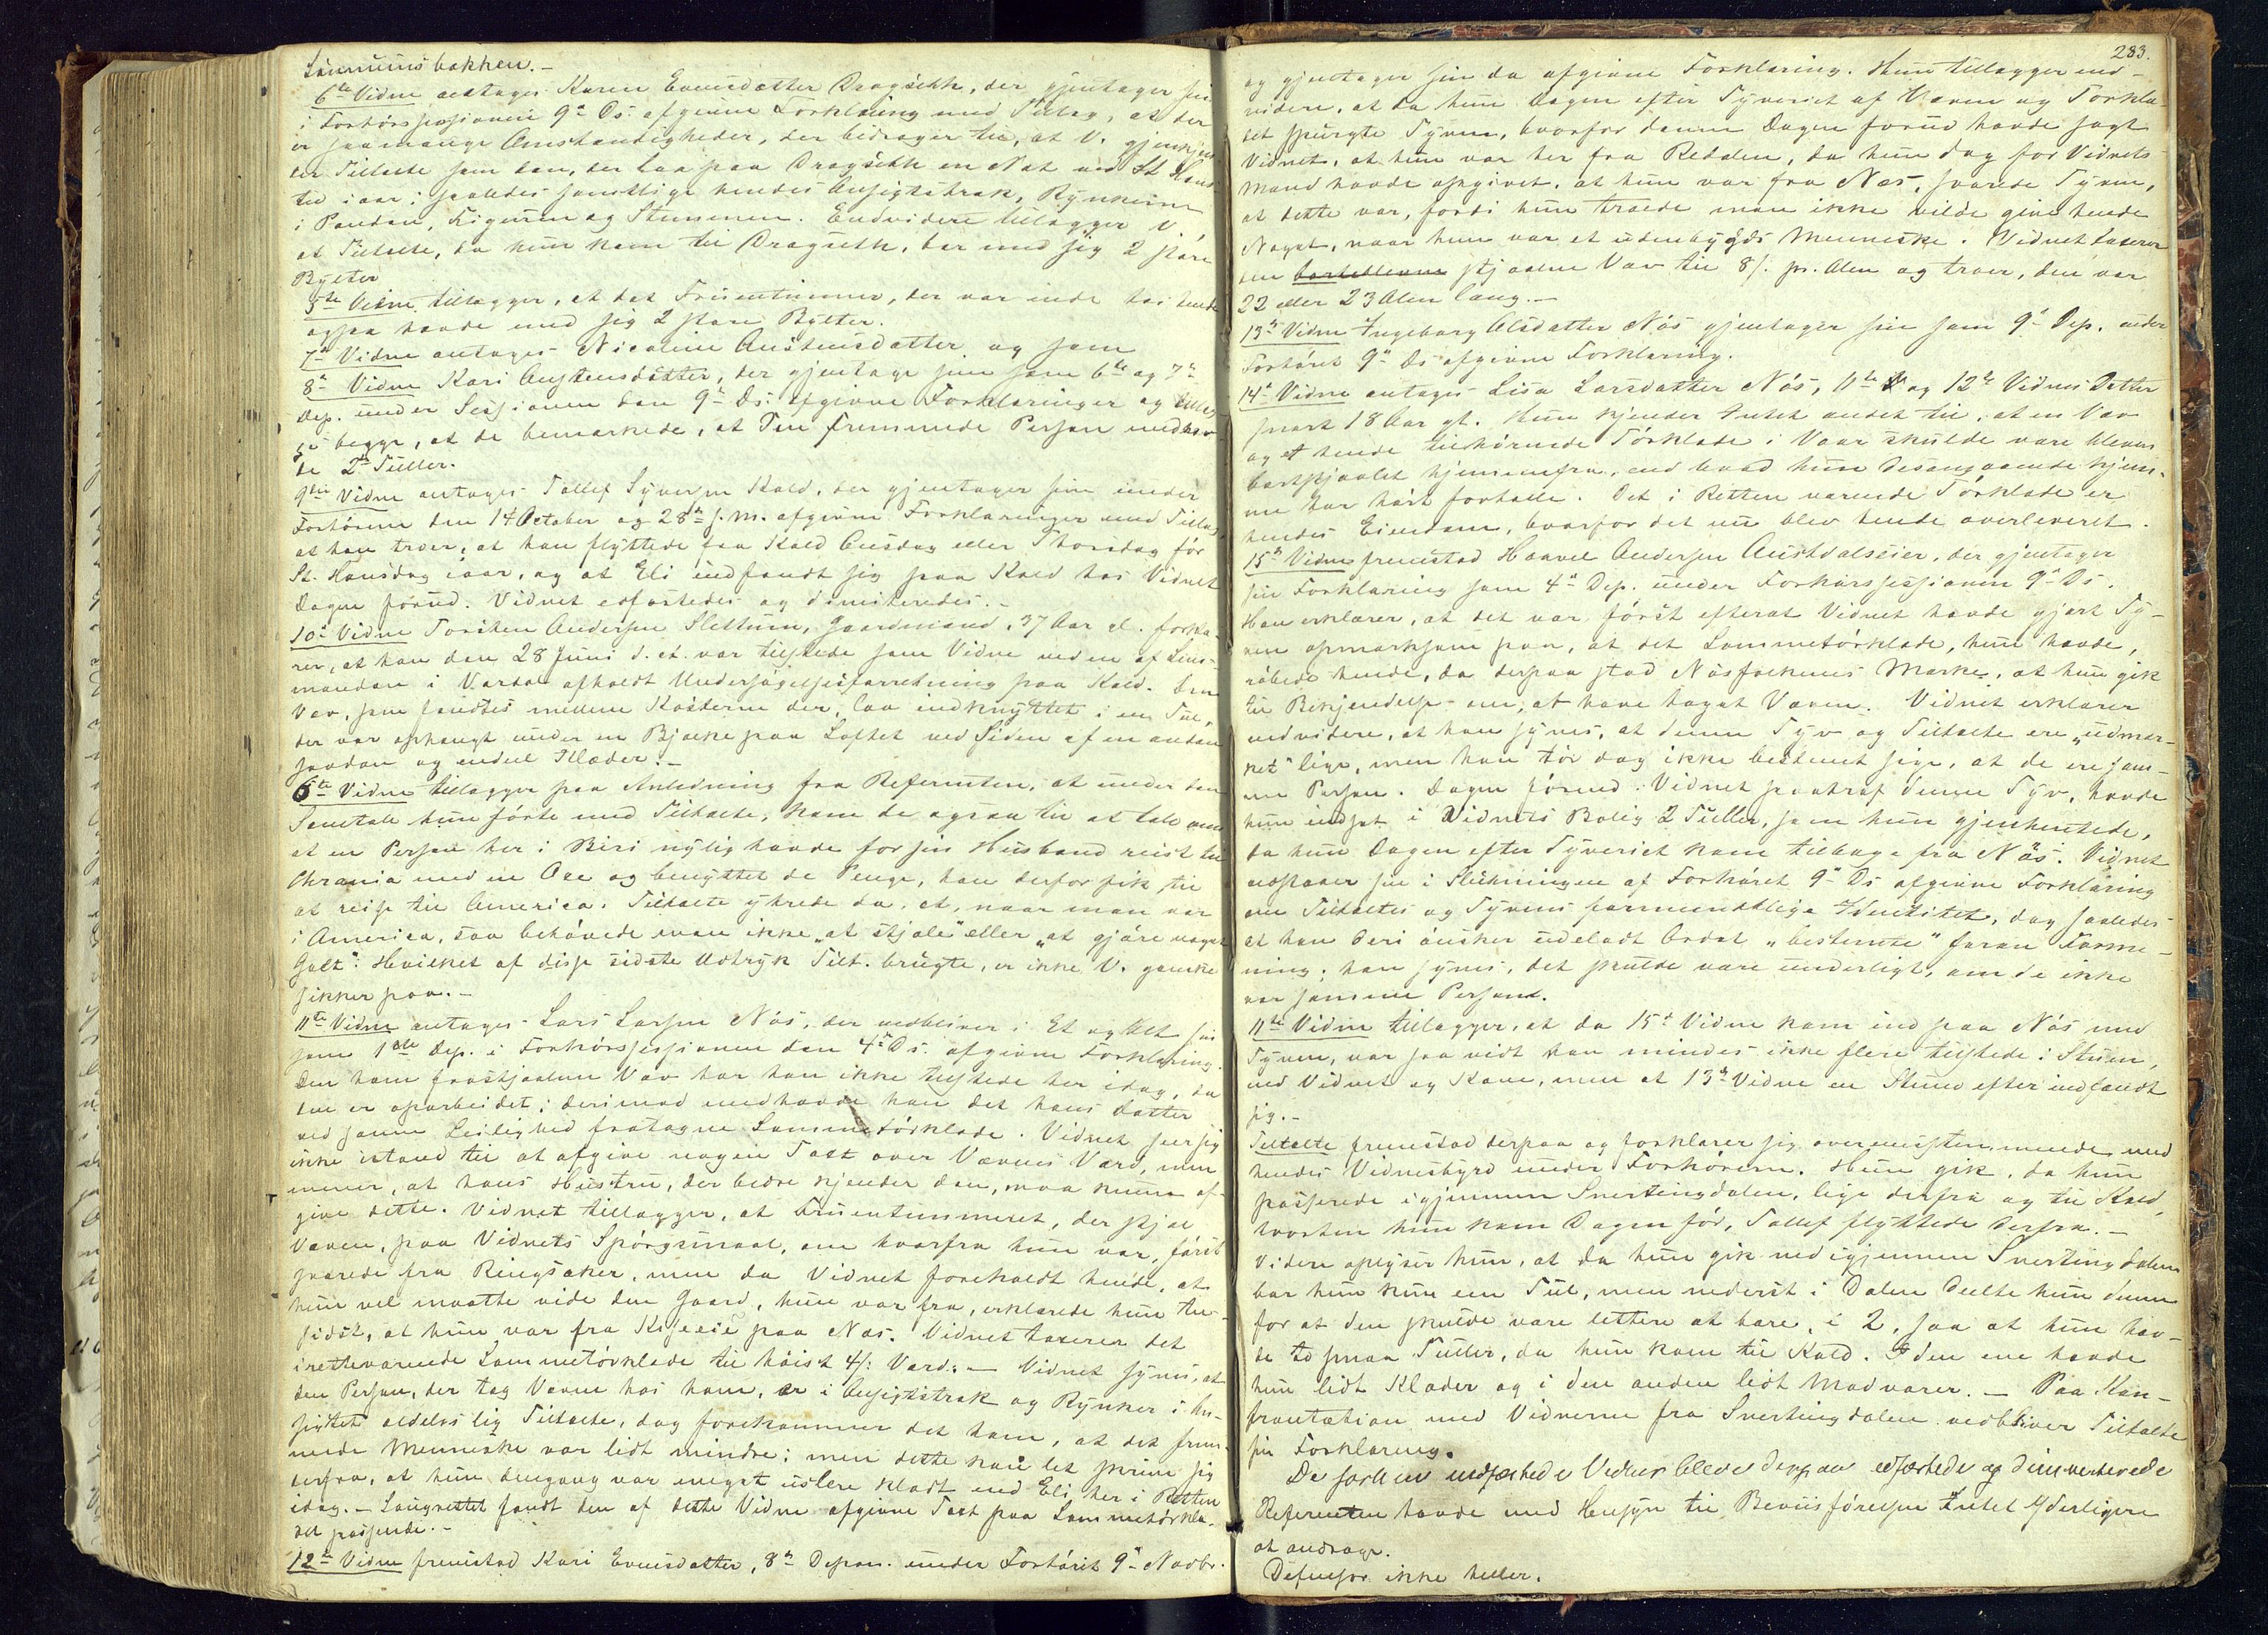 Lönnumsbakken.-
6te Vidne antages Karen Evensdatter Dragseth, der gjentager sin
i Forhörssessionen 9de Ds. afgivne Forklaring med Tillæg, at der
er saamange Omstændigheder, der bidrager til, at V. gjenkjen-
der Tiltalte som den, der laa paa Dragseth en Nat ved St Hans-
tid iaar; saaledes samtlige hendes Ansigtstræk, Rynkerne
i Panden, Figuren og Stemmen. Endvidere tillægger V.
at Tiltalte, da hun kom til Dragseth, bar med sig 2 store
Bylter
5te Vidne tillægger, at det Fruentimmer, der var inde hos hende
ogsaa havde med sig 2 store Bylter.
7de Vidne antages Nicoline Austensdatter og som
8de Vidne Kari Austensdatter, der gjentage sine som 6te og 7de
Dep. under Sessionen den 9de Ds. afgivne Forklaringer og tillæg-
ge begge, at de bemærkede, at den fremmede Person medhav-
de 2de Tuller.
9de Vidne antages Tollef Syversen Kald, der gjentager sine under
Forhörene den 14 October og 28de f. M. afgivne Forklaringer med Tillæg,
at han troer, at han flyttede fra Kald Onsdag eller Thorsdag för
St. Hansdag iaar, og at Eli indfandt sig paa Kald hos Vidnet
Dagen forud. Vidnet edfæstedes og dimitteredes.-
10de Vidne Torsten Andersen Slettum, Gaardmand, 37 Aar gl. forkla-
rer, at han den 28 Juni d. A. var tilstede som Vidne ved en af Lens-
manden i Vardal afholdt Undersögelsesforretning paa Kald. Den
Væv, som fandtes mellem Kosterne der, laa indknyttet i en Tul,
der var ophængt under en Bjælke paa Loftet ved Siden af en anden
saadan og endeel Klæder.-
6te Vidne tillægger paa Anledning fra Referenten, at under den
Samtale hun förte med Tiltalte, kom de ogsaa til at tale om
at en Person her i Biri nylig havde for sin Husbond reist til
Chrania med en Oxe og benyttet de Penge, han derfor fik, til
at reise til America. Tiltalte ytrede da, at, naar man var
i America, saa behövede man ikke "at stjæle" eller "at gjöre noget
Galt". Hvilket af disse sidste Udtryk Tilt. brugte, er ikke V. ganske
sikker paa.-
11te Vidne antages Lars Larsen Näs, der vedbliver i Et og Alt sin
som 1ste Dep. i Forhörssessionen den 4de Ds. afgivne Forklaring.
Den ham frastjaalne Væv har han ikke tilstede her idag, da
den er oparbeidet; derimod medhavde han det hans Datter
ved samme Leilighed fratagne Lommetörklæde. Vidnet seer sig
ikke istand til at afgive nogen Taxt over Vævens Værd, men
mener, at hans Hustru, der bedre kjender den, maa kunne af-
give dette. Vidnet tillægger, at Fruentimmeret, der stjal
Væven, paa Vidnets Spörgsmaal, om hvorfra hun var, först
svarede fra Ringsaker, men da Vidnet foreholdt hende, at
hun vel maatte vide den Gaard, hun var fra, erklærede hun til-
sidst, at hun var fra Kiseeie paa Næs. Vidnet taxerer det
iretteværende Lommetörklæde til höist 4 ß Værd.- Vidnet synes, at
den Person, der tog Væven hos ham, er i Ansigtstræk og Rynker i An-
sigtet aldeles lig Tiltalte, dog forekommer det ham, at det frem-
mede Menneske var lidt mindre; men dette kan let skrive sig
derfra, at hun dengang var meget uslere klædt end Eli her i Retten
idag.- Laugrettet fandt den af dette Vidne afgivne Taxt paa Lommetörklæ-
det passende.-
12te Vidne fremstod Kari Evensdatter, 8de Depon. under Forhöret 9de Novbr.
283.
og gjentager sin da afgivne Forklaring. Hun tillægger end-
videre, at da hun Dagen efter Tyveriet af Væven og Törklæ-
det spurgte Tyven, hvorfor denne Dagen forud havde sagt
Vidnet, at hun var her fra Redalen, da hun dog for Vidnets
Mand havde opgivet, at hun var fra Næs, svarede Tyven,
at dette var, fordi hun troede man ikke vilde give hende
Noget, naar hun var et udenbygds Menneske. Vidnet taxerer
den stjaalne Væv til 8 ß pr. Alen og troer, den var
22 eller 23 Alen lang.-
13de Vidne Ingeborg Olsdatter Näs gjentager sin som 9de Dep. under
Forhöret 9de Ds afgivne Forklaring.
14de Vidne antages Lisa Larsdatter Näs, 11te og 12te Vidnes Datter
snart 18 Aar gl. Hun kjender Intet andet til, at en Væv
og et hende tilhörende Törklæde i Vaar skulde være bleven
bortstjaalet hjemmefra, end hvad hun desangaaende hjem-
me har hört fortælle. Det i Retten værende Törklæde er
hendes Eiendom, hvorfor det nu blev hende overleveret.
15de Vidne fremstod Haavel Andersen Austdalseier, der gjentager
sin Forklaring som 4de Dep. under Forhörssessionen 9de Ds.
Han erklærer, at det var först efterat Vidnet havde gjort Ty-
ven opmærksom paa, at det Lommetörklæde, hun havde,
röbede hende, da derpaa stod Näsfolkenes Mærke, at hun gik
til Bekjendelse om, at have taget Væven. Vidnet erklærer
endvidere, at han synes, at denne Tyv og Tiltalte ere "udmær-
ket" lige, men han tör dog ikke bestemt sige, at de ere sam-
me Person. Dagen förend Vidnet paatraf denne Tyv, havde
hun indsat i Vidnets Bolig 2 Tuller, som hun gjenhentede,
da hun Dagen efter Tyveriet kom tilbage fra Näs. Vidnet
vedtager sin i Slutningen af Forhöret 9de Ds afgivne Forklaring
om Tiltaltes og Tyvens formentlige Identitet, dog saaledes
at han deri önsker udeladt Ordet "bestemte" foran Forme-
ning; han synes, det skulde være underligt, om de ikke
var samme Person.
11te Vidne tillægger, at da 15de Vidne kom ind paa Näs med
Tyven, var saa vidt han mindes ikke flere tilstede i Stuen,
end Vidnet og Kone, men at 13de Vidne en Stund efter indfandt
sig.-
Tiltalte fremstod derpaa og forklarer sig overensstemmende med
hendes Vidnesbyrd under Forhörene. Hun gik, da hun
passerede igjennem Snertingdalen, lige derfra og til Kald,
hvorhen hun kom Dagen för, Tollef flyttede derfra.-
Videre oplyser hun, at da hun gik ned igjennem Snertingdalen
bar hun kun een Tul, men nederst i Dalen deelte hun denne
for at den skulde være lettere at bære, i 2, saa at hun hav-
de to smaa Tuller, da hun kom til Kald. I den ene havde
hun lidt Klæder og i den anden lidt Madvarer.- Paa Kon-
frontation med Vidnerne fra Snertingdalen vedbliver Tiltalte
sin Forklaring.
De forhen uedfæstede Vidner bleve derpaa edfæstede og dimitterede
Referenten havde med Hensyn til Beviisförelsen Intet Yderligere
at andrage.
Defensor ikke heller.